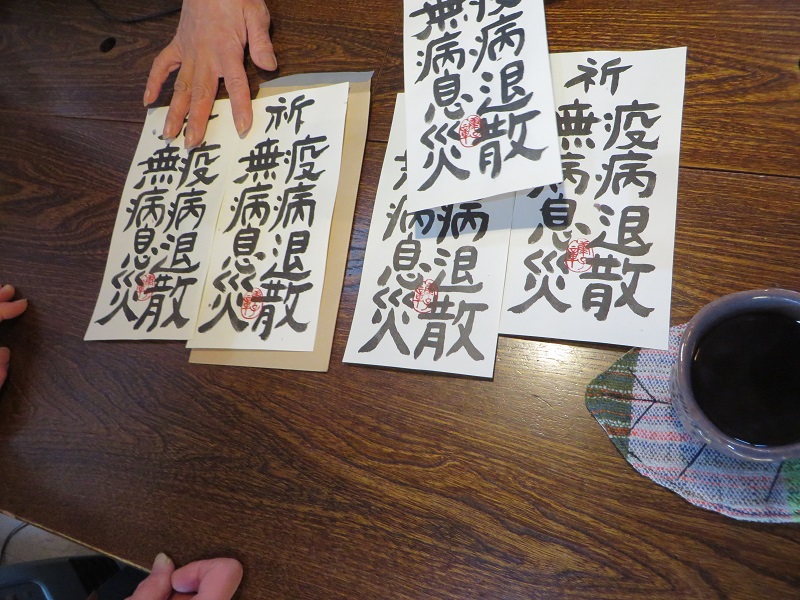 疫病退散
無病息災
祈
疫病退散
無病息災
病退散
病息災
疫病退散
無病息災
祈
疫病退散
無病息災